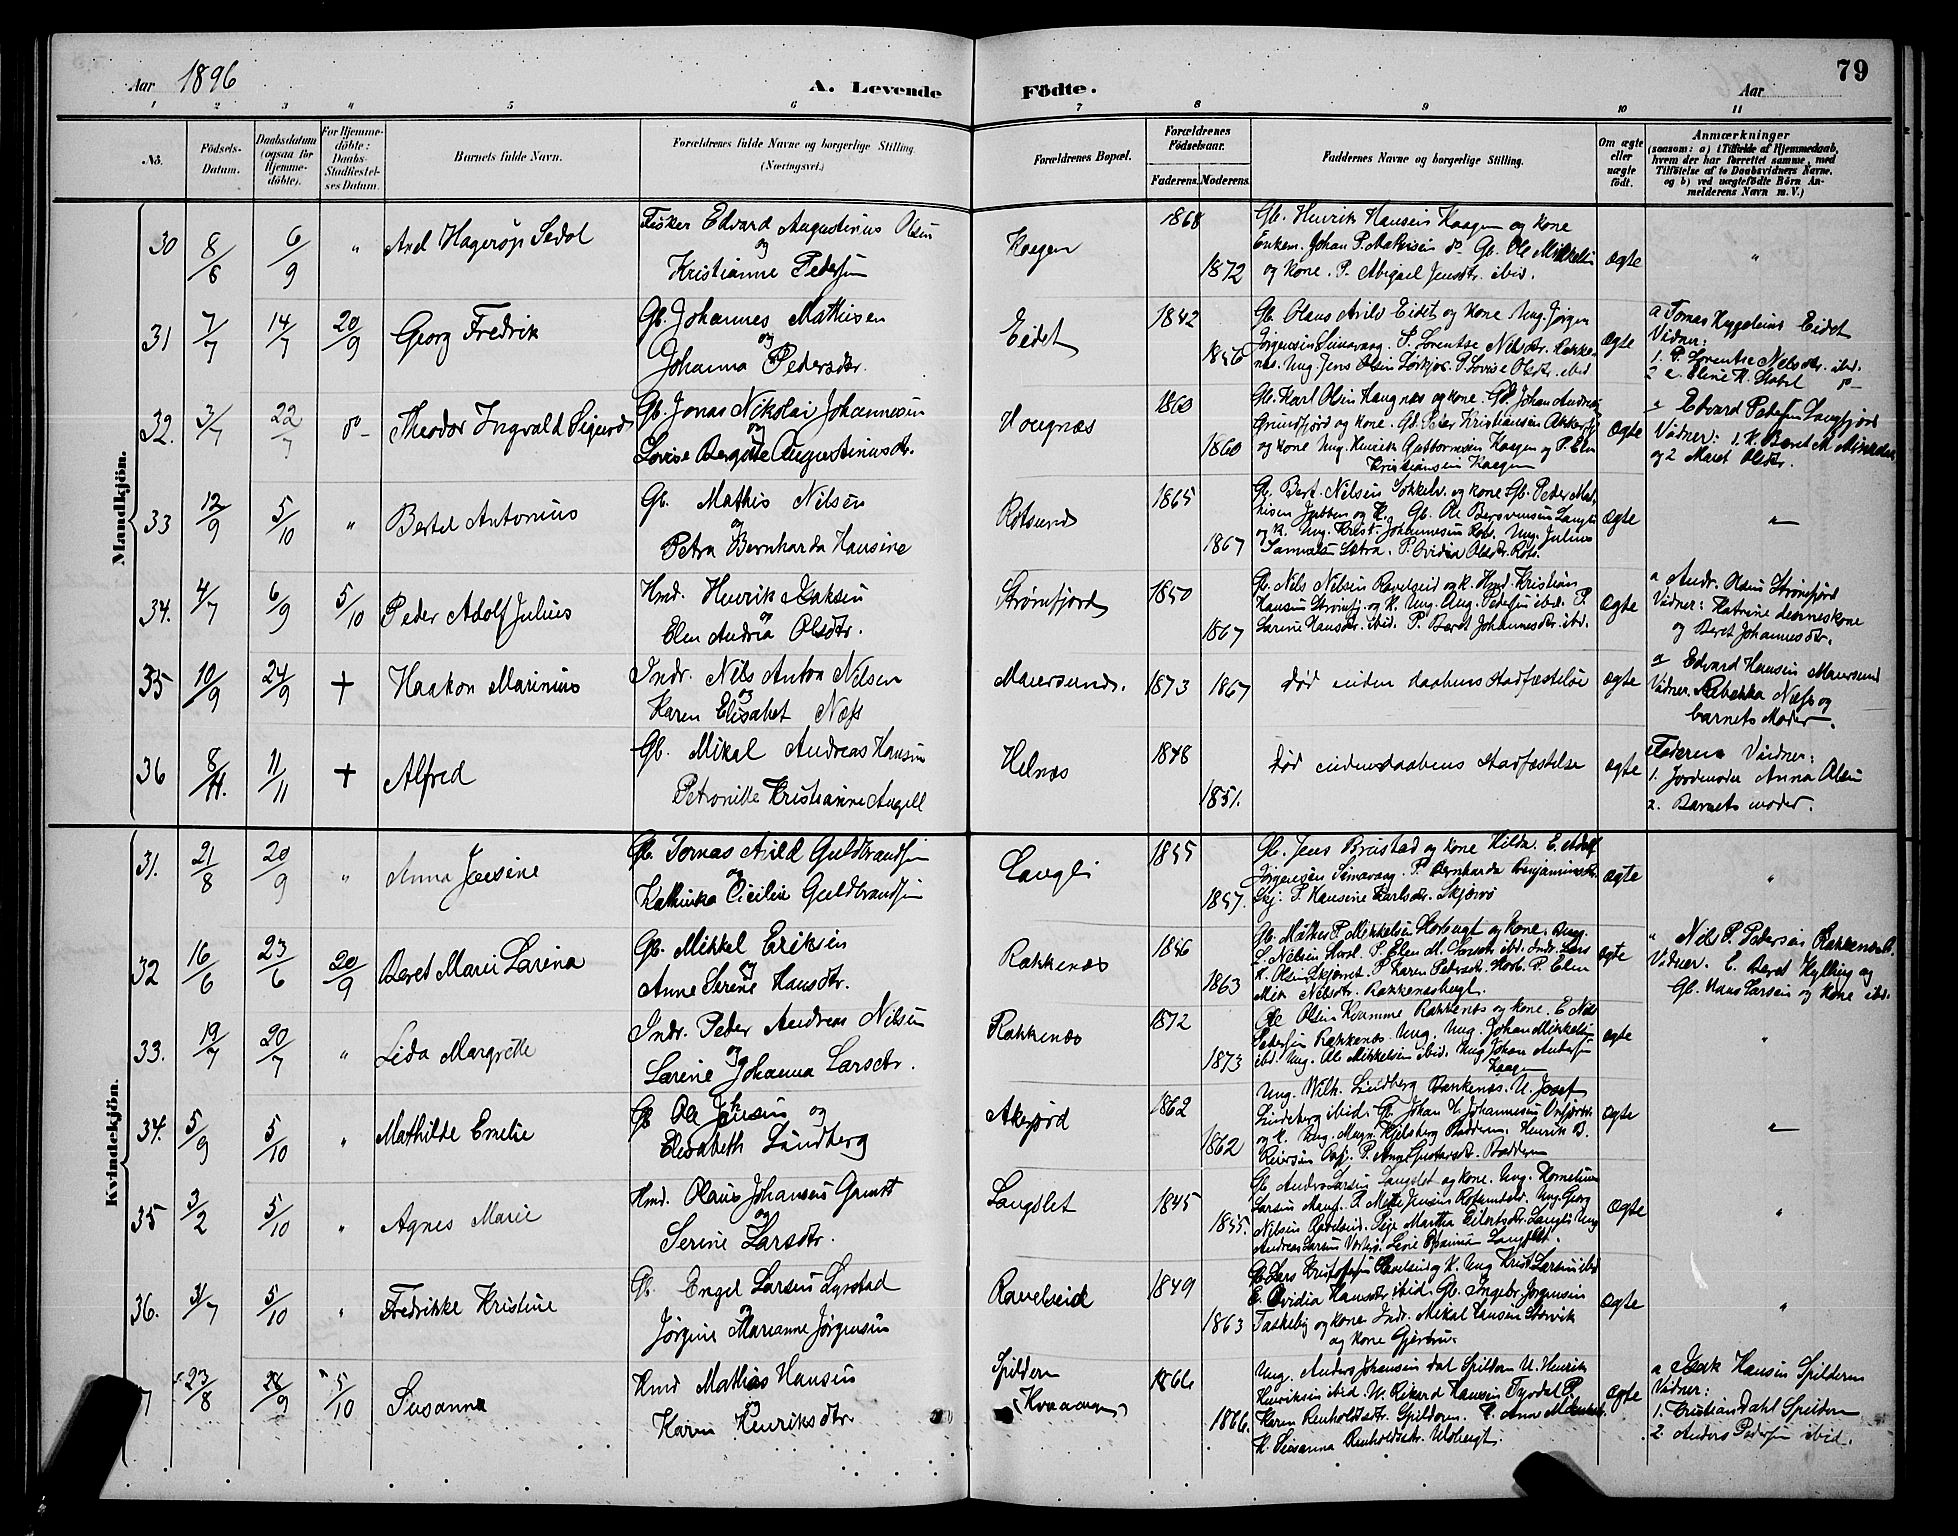 Aar 1896
A. Levende Födte.
Aar
79
1 2 3 " 5 6 7 8 9 10 11
No.
Födsels-Datum.
Daabsdatum (ogsaa for Hjemme-döbte).
For Hjemme-döbte: Daabs-Stadfestel-ses Datum.
Barnets fulde Navn.
Forældrenes fulde Navne og borgerlige Stilling. (Næringsvei.)
Forældrenes Bopæl.
Forældrenes Födselsaar.
Faderens. Moderens.
Faddernes Navne og borgerlige Stilling.
Om ægte eller uægte födt.
Anmærkninger
(saasom: a) i Tilfælde af Hjemmedaab, hvem der har forrettet samme, med Tilföielse af to Daabsvidners Navne, og b) ved uægtefödte Börn An-melderens Navn m. V.)
Mandkjön.
30 8/8 6/9 " Axel Hagerop Sedol
Fisker Edvard Augustinus Olsen
og
Kristianne Pedersen
Kaagen 1868 1872
Gb. Henrik Hansen Kaagen og kone
Enkem. Johan P. Mathisen do Gb. Ole Mikkelsen
og kone. P. Abigael Jensdtr. ibid.
Ægte "
31 7/7 14/7 20/9 Georg Fredrik
Gb. Johannes Mathisen
og
Johanna Pedersdtr.
Eidet 1842 1856
Gb. Olaus Arild Eidet og kone Ung. Jørgen
Jørgensen Simavaag. P. Lorentse Nilsdtr. Rakke-
næs. Ung. Jens Olsen Sørkjos. P. Lovise Olsdtr. ibid
Ægte
a Tomas Eidet
Vidner:
1. P. Lorentse Nilsdtr. ibid.
32. 3/7 22/7 do- Theodor Ingvald Sigurd
Gb. Jonas Nikolai Johannesen
og
Lovise Bergitte Augustinusdtr.
Haugnæs 1860 1860
Gb. Karl Olsen Haugnæs og kone. Gb. Johan Andreas
Grundfjord og kone. Gb. Peder Kristiansen
og kone Ung. Henrik Kaagen og P. Elen
Kristiansen Kaagen
Ægte
a Edvard Pedersen Langfjord
Vidner: 1. K. Beret M.
og 2 Maret Olsdtr.
33 12/9 5/10 " Bertel Antonius
Gb. Mathis Nilsen
og
Petra Bernharda Hansine
Rotsund 1865 1867
Gb. Bert. Nilsen Sokkelv. og kone Gb. Peder Mat-
hisen og K. Gb. Ole
og K. Ung. Krist. Johannesen Rots. Ung. Julius
Samuelsen Sætra. P. Ovidia Olsdtr. Rots.
Ægte "
34. 4/7 6/9 5/10 Peder Adolf Julius
Hmd. Henrik Isaksen
og
Elen Andrea Olsdtr.
Strømfjord 1850 1867
Gb. Nils Nilsen Ravelseid og K. Hmd. Kristian
Hansen Strømfj. og K. Ung. Aug. Pedersen ibid. P.
Sarine Hansdtr. ibid. P. Beret Johannesdtr. ibid.
Ægte
a Andr. Olsen Strømfjord
Vidner: Katrine
og Beret Johannesdtr.
35 10/9 24/9 + Haakon Marinius
Indr. Nils Anton Nilsen
og
Karen Elisabet Næss
Maursund. 1873 1867
død inden daabens stadfæstelse
Ægte
a Edvard Hansen Maursund
Vidner. Rebekka Næss og
barnets Moder.
36 8/11. 11/11 + Alfred
Gb. Mikal Andreas Hansen
Petronille Kristianne Angell
Helnæs 1848 1851.
død inden daabens stadfæstelse
Ægte
Faderen Vidner:
1. Jordemoder Anna Olsen
2. Barnets moder.
Kvindekjön.
31. 21/8 20/9 " Anna Jensine
Gb. Tomas Arild Guldbrandsen
og
Kathinka Cicilie Guldbrandsen
Langli 1855 1857.
Gb. Jens Brustad og kone Hilda. E. Adolf
Jørgensen Simavaag. P. Bernharda Benjaminsdtr.
Skj. P. Hansine Karlsdtr. Skjervø
Ægte "
32 16/6 23/6 20/9 Beret Marie Larina
Gb. Mikkel Eriksen
og
Anne Serene Hansdtr.
Rakkenæs 1846 1863
Gb. P. Mikkelsen og kone. Ung.
L. Nilsen P. Elen M. ibid. Indr. Lars
K. Olsen Skjerret. P. Karen Pedersdtr. P. Elen
Nilsdtr. Rakkenesbugt.
Ægte
" Nils P. Pedersen Rakkenæsb.
Vidner. E. Beret Kylling og
Gb. Hans Larsen og kone ibd.
33. 19/7 20/7 " Lida Margrethe
Indr. Peder Andreas Nilsen
og
Larine Johanna Larsdtr.
Rakkenæs 1872 1873
Ole Olsen Kvamme Rakkenæs og kone. E. Nils
Pedersen Rakkenæs. Ung. Johan Mikkelsen
ibid. Ung. Ole Mikkelsen ibid. Ung Johan Andersen
Kaagen
Ægte "
34. 5/9 5/10 " Mathilde Emelie
Gb. Ole Jensen og
Elisabeth Lindberg
Akefjord 1862 1862
Ung. Wilh. Lindberg Rakkenæs. U. Josef
Lindeberg ibid. Gb. Johan H. Johannesen
og K. Ung. Magn. Kjelsberg Badderen. Henrik B.
Badderen
Ægte "
35 3/2 5/10 " Agnes Marie
Hmd. Olaus Johansen Grunst
og
Serine Larsdtr.
Langslet 1845 1855.
Gb. Anders Larsen Langslet og kone. Ung. Kornelius
Larsen P. Mette Jensen Ung. Georg
Nilsen Ravelseid. Pige Martha Eilertsdtr. Langli Ung
Andreas Larsen
Ægte "
36. 31/7 5/10 " Fredrikke Kristine
Gb. Engel Larsen Lyrstad
og
Jørgine Marianne Jørgensen
Ravelseid 1849 1863
Gb. Lars Kristoffersen Ravelseid og K. Ung Krist. Larsen ibid
E. Ovidia Hansdtr ibid. Gb. Ingebr. Jørgensen
Taskeby og kone Indr. Mikal Hansen Storvik
og kone Gjertine.
Ægte "
7 23/8 24/9 5/10 Susanna
Hmd Mathias Hansen
og
Karen Henriksdtr.
Spilderen (Kvænangen) 1866 1866.
Ung. Anders Johansen dal Spildern U. Henrik
Henriksen ibid. U. Rikard Hansen P.
Karen Renholdsdtr. Spilderen. P. Anne
K. Susanna Renholdsdtr.
Ægte
a Isak Hansen Spilderen
Vidner:
1. Cristian Dahl Spildern
2. Anders Pedersen ibid.